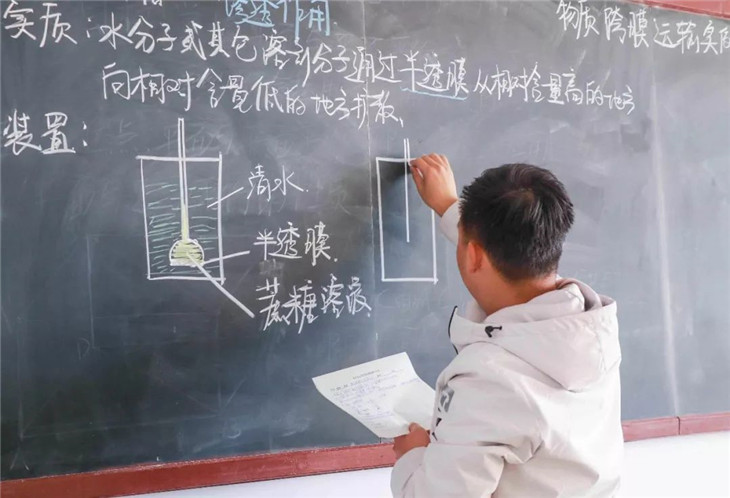 渗透作用
物质跨膜运输实
实质：水分子或其他溶剂分子通过半透膜从相对含量高的地方
向相对含量低的地方扩散、
装置：
清水
半透膜
蔗糖溶液